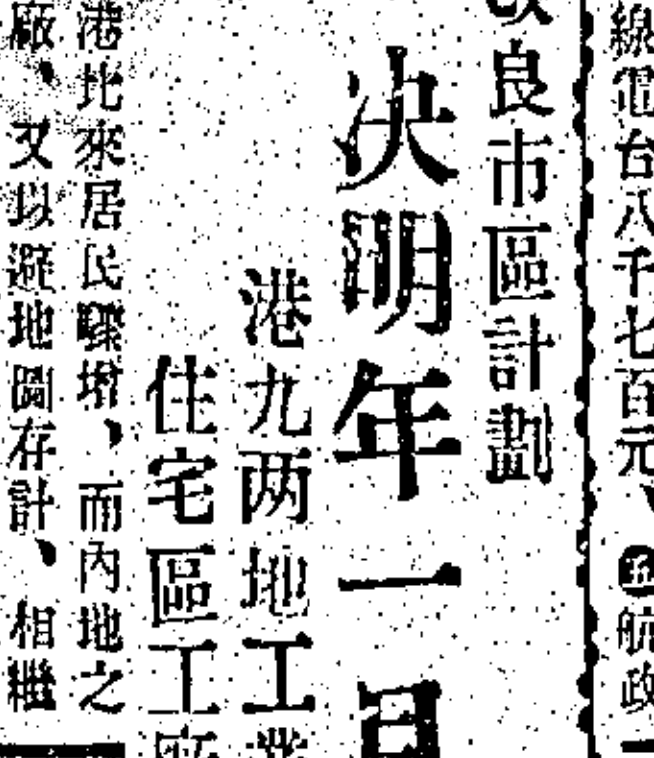 線電台八千七百元、㊄航政
改良市區計劃
決明年一月
港九两地工業
住宅區工廠
港比來居民驟增、而內地之
廠、又以避地圖存計、相繼